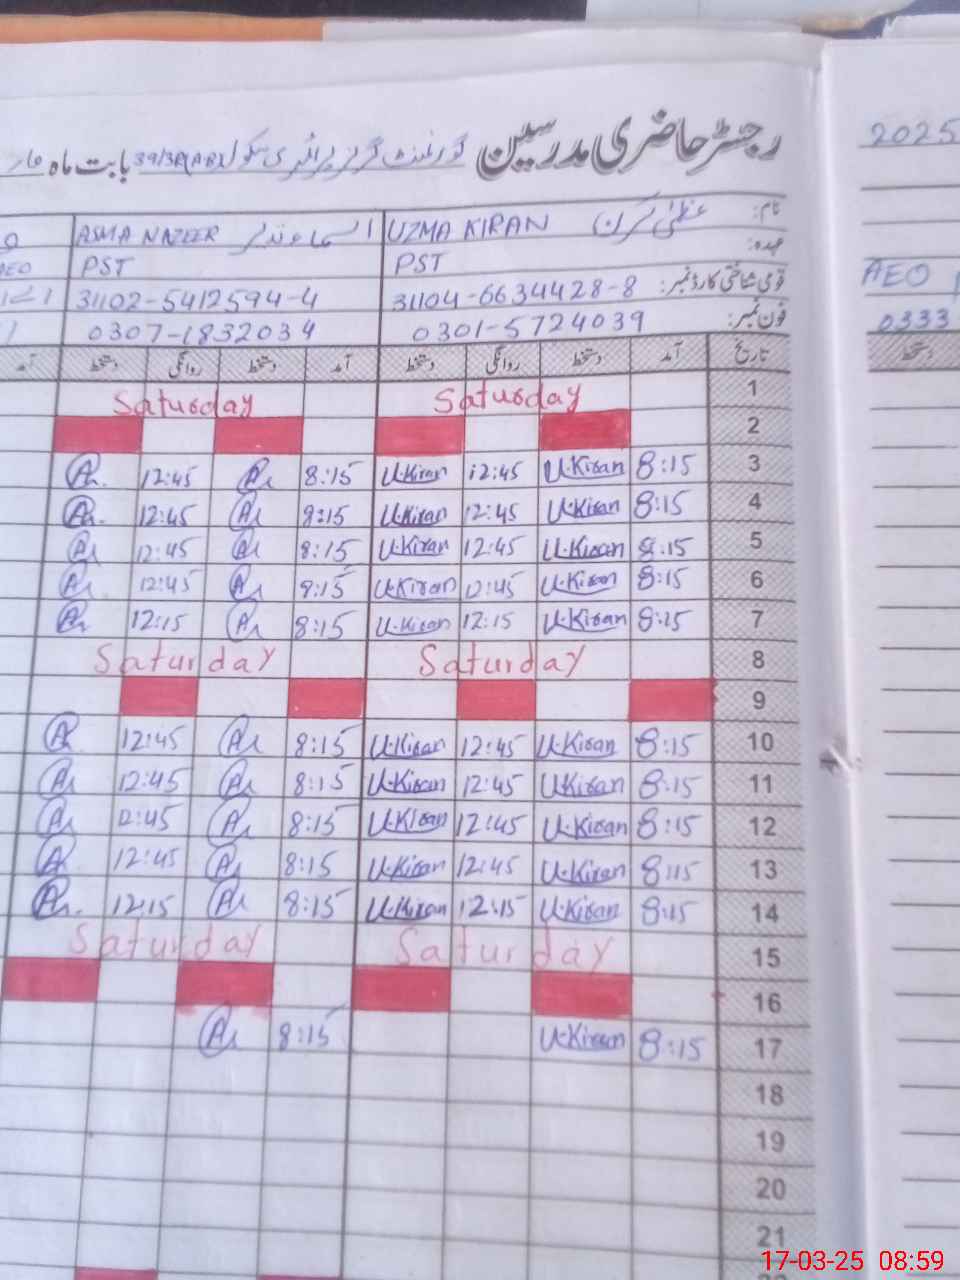 2025
رجسٹر حاضری مدرسین گورنمنٹ گرلز پرائمری سکول 39/3R(AB) بابت ماہ مار
نام: عظمیٰ کرن UZMA KIRAN اسماء نذیر ASMA NAZEER
عہدہ: PST PST
AEO
قومی شناختی کارڈ نمبر: 31104-6634428-8 31102-5412594-4
فون نمبر: 0301-5724039 0307-1832034
0333
تاریخ آمد دستخط روانگی دستخط آمد دستخط روانگی دستخط آمد دستخط
1 Saturday Saturday
2
3 8:15 U.Kiran 12:45 U.Kiran 8:15 12:45
4 8:15 U.Kiran 12:45 U.Kiran 8:15 12:45
5 8:15 U.Kiran 12:45 U.Kiran 8:15 12:45
6 8:15 U.Kiran 12:45 U.Kiran 8:15 12:45
7 8:15 U.Kiran 12:15 U.Kiran 8:15 12:15
8 Saturday Saturday
9
10 8:15 U.Kiran 12:45 U.Kiran 8:15 12:45
11 8:15 U.Kiran 12:45 U.Kiran 8:15 12:45
12 8:15 U.Kiran 12:45 U.Kiran 8:15 12:45
13 8:15 U.Kiran 12:45 U.Kiran 8:15 12:45
14 8:15 U.Kiran 12:15 U.Kiran 8:15 12:15
15 Saturday Saturday
16
17 8:15 U.Kiran 8:15
18
19
20
21
17-03-25 08:59